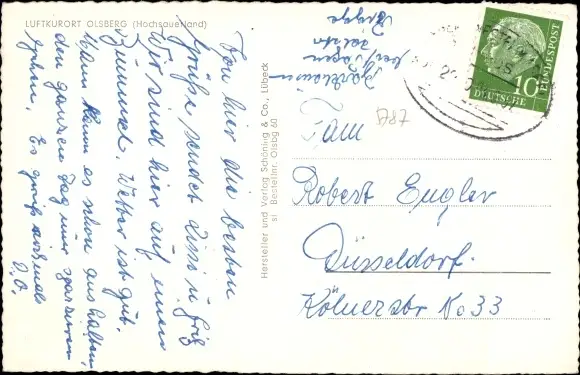 LUFTKURORT OLSBERG (Hochsauerland)
Von hier die besten
Grüße sendet Sissi u. Grig
Wir sind hier auf einem
Bummel. Wetter ist gut.
Man kann es schon aushalten,
den ganzen Tag nur spazieren
gehen. Es grüßt nochmals
D.O.
Hersteller und Verlag Schöning & Co., Lübeck
si Bestellnr. Olsbg 60
10
DEUTSCHE
BUNDESPOST
Fam
A787
Robert Engler
Düsseldorf.
Kölnerstr No 33